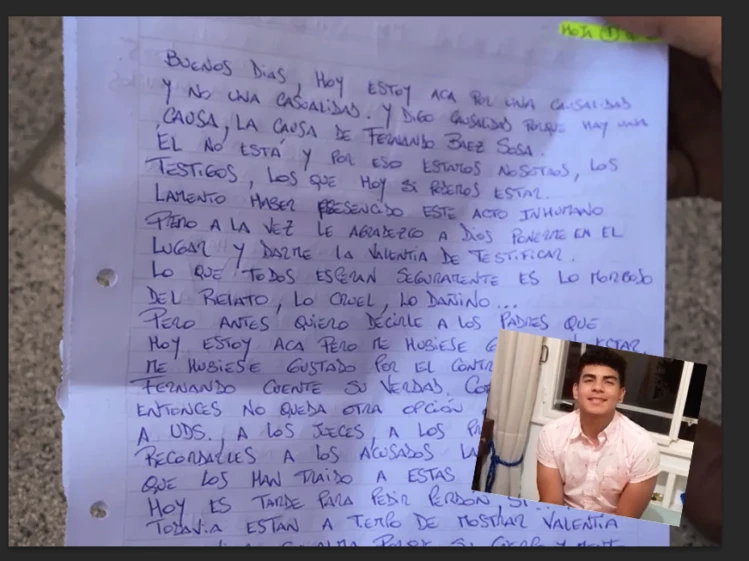 HOJA (1)
BUENOS DIAS, HOY ESTOY ACA POR UNA CAUSALIDAD
Y NO UNA CASUALIDAD. Y DIGO CAUSALIDAD PORQUE HAY UNA
CAUSA, LA CAUSA DE FERNANDO BAEZ SOSA.
EL NO ESTÁ Y POR ESO ESTAMOS NOSOTROS, LOS
TESTIGOS, LOS QUE HOY SI PODEMOS ESTAR.
LAMENTO HABER PRESENCIADO ESTE ACTO INHUMANO
PERO A LA VEZ LE AGRADEZCO A DIOS PONERME EN EL
LUGAR Y DARME LA VALENTIA DE TESTIFICAR.
LO QUE TODOS ESPERAN SEGURAMENTE ES LO MORBOSO
DEL RELATO, LO CRUEL, LO DAÑINO...
PERO ANTES QUIERO DECIRLE A LOS PADRES QUE
HOY ESTOY ACA PERO ME HUBIESE ESTAR,
ME HUBIESE GUSTADO POR EL
FERNANDO CUENTE SU VERDAD.
ENTONCES NO QUEDA OTRA OPCIÓN
A UDS., A LOS JUECES, A LOS
RECORDARLES A LOS ACUSADOS
QUE LOS HAN TRAIDO A ESTAS
HOY ES TARDE PARA PEDIR PERDON,
TODAVIA ESTAN A TIEMPO DE MOSTRAR VALENTIA